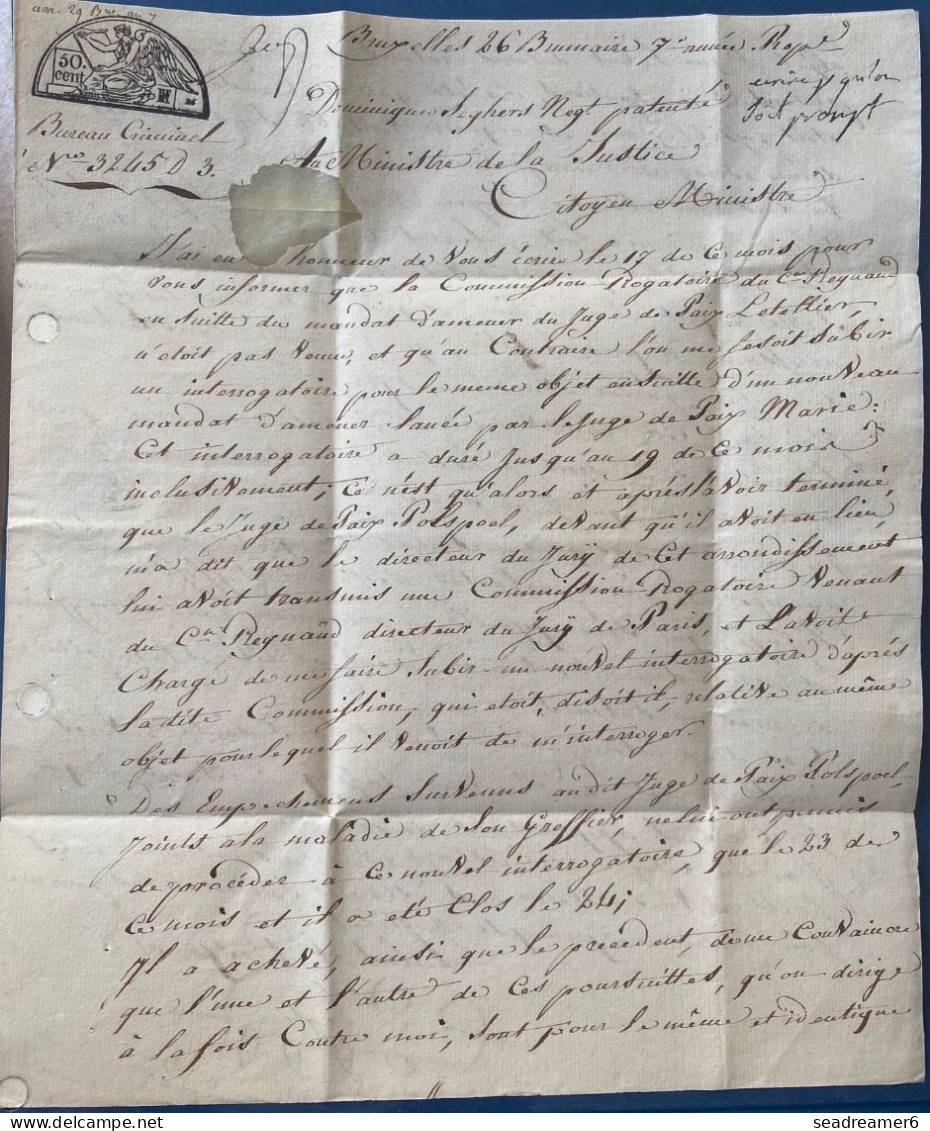 arr. 29 Bre an 7
50.
cent
Bruxelles 26 Brumaire 7e année Repe
Bureau Criminel
Nro 3245 D 3.
Dominique Seghers Negt. patenté
Au Ministre de la Justice
Citoyen Ministre
J'ai eu honneur de Vous écrire le 17 de Ce mois pour
Vous informer que la Commission Rogatoire du Cen Reynaud
en suitte du mandat d'amener du Juge de Paix Letellier,
n'etoit pas venue, et qu'au Contraire l'on me fesoit Subir
un interrogatoire pour le meme objet ensuitte d'un nouveau
mandat d'amener lancé par le Juge de Paix Marie:
Cet interrogatoire a duré Jusqu'au 19 de Ce mois
inclusivement; Ce n'est qu'alors et après l'avoir terminé,
que le Juge de Paix Polspoel, devant qu'il avoit eu lieu,
m'a dit que le directeur du Jurÿ de Cet arrondissement
lui avoit transmis une Commission Rogatoire Venant
du Cen Reynaud directeur du Jurÿ de Paris, et L'avoit
Chargé de me faire Subir un nouvel interrogatoire d'après
ladite Commission, qui etoit, disoit il, relative au même
objet pour lequel il Venoit de m'interroger.
Des Empechemens Survenus audit Juge de Paix Polspoel,
Joints a la maladie de Son Greffier, ne lui ont permis
de procéder à Ce nouvel interrogatoire, que le 23 de
Ce mois et il a eté Clos le 24;
Il a achevé, ainsi que le precedent, de me Convaincre
que l'une et l'autre de Ces poursuittes, qu'on dirige
à la fois Contre moi, Sont pour le même et identique
seadreamer6